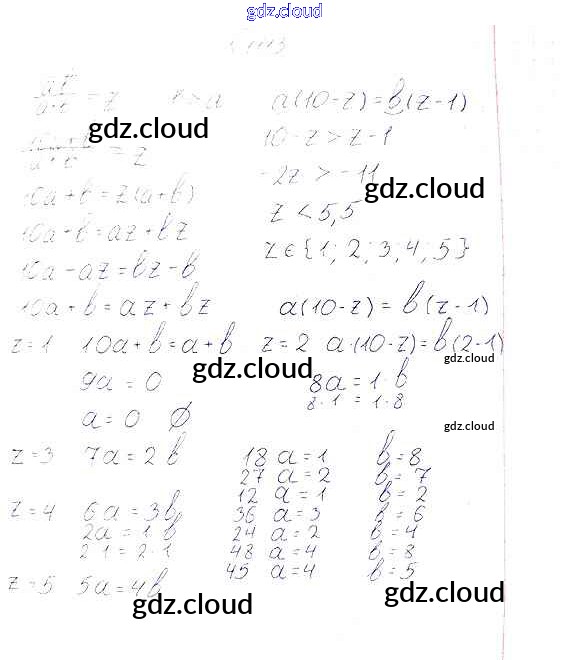 gdz.cloud
= z   a(10-z) = b(z-1)
gdz.cloud
= z   10-z > z-1
-2z > -11
gdz.cloud
10a + b = z(a+b)   z < 5,5
10a + b = az + bz   z ∈ {1; 2; 3; 4; 5}
10a - az = bz - b
10a + b = az + bz   a(10-z) = b(z-1)
z = 1   10a + b = a + b   z = 2   a·(10-z) = b(2-1)
gdz.cloud   gdz.cloud
9a = 0   8a = 1·b
8·1 = 1·8
a = 0   Ø   gdz.cloud
z = 3   7a = 2b   18   a = 1   b = 8
27   a = 2   b = 7
12   a = 1   b = 2
z = 4   6a = 3b   36   a = 3   b = 6
2a = 1·b   24   a = 2   b = 4
2·1 = 2·1   48   a = 4   b = 8
z = 5   5a = 4b   45   a = 4   b = 5
gdz.cloud   gdz.cloud